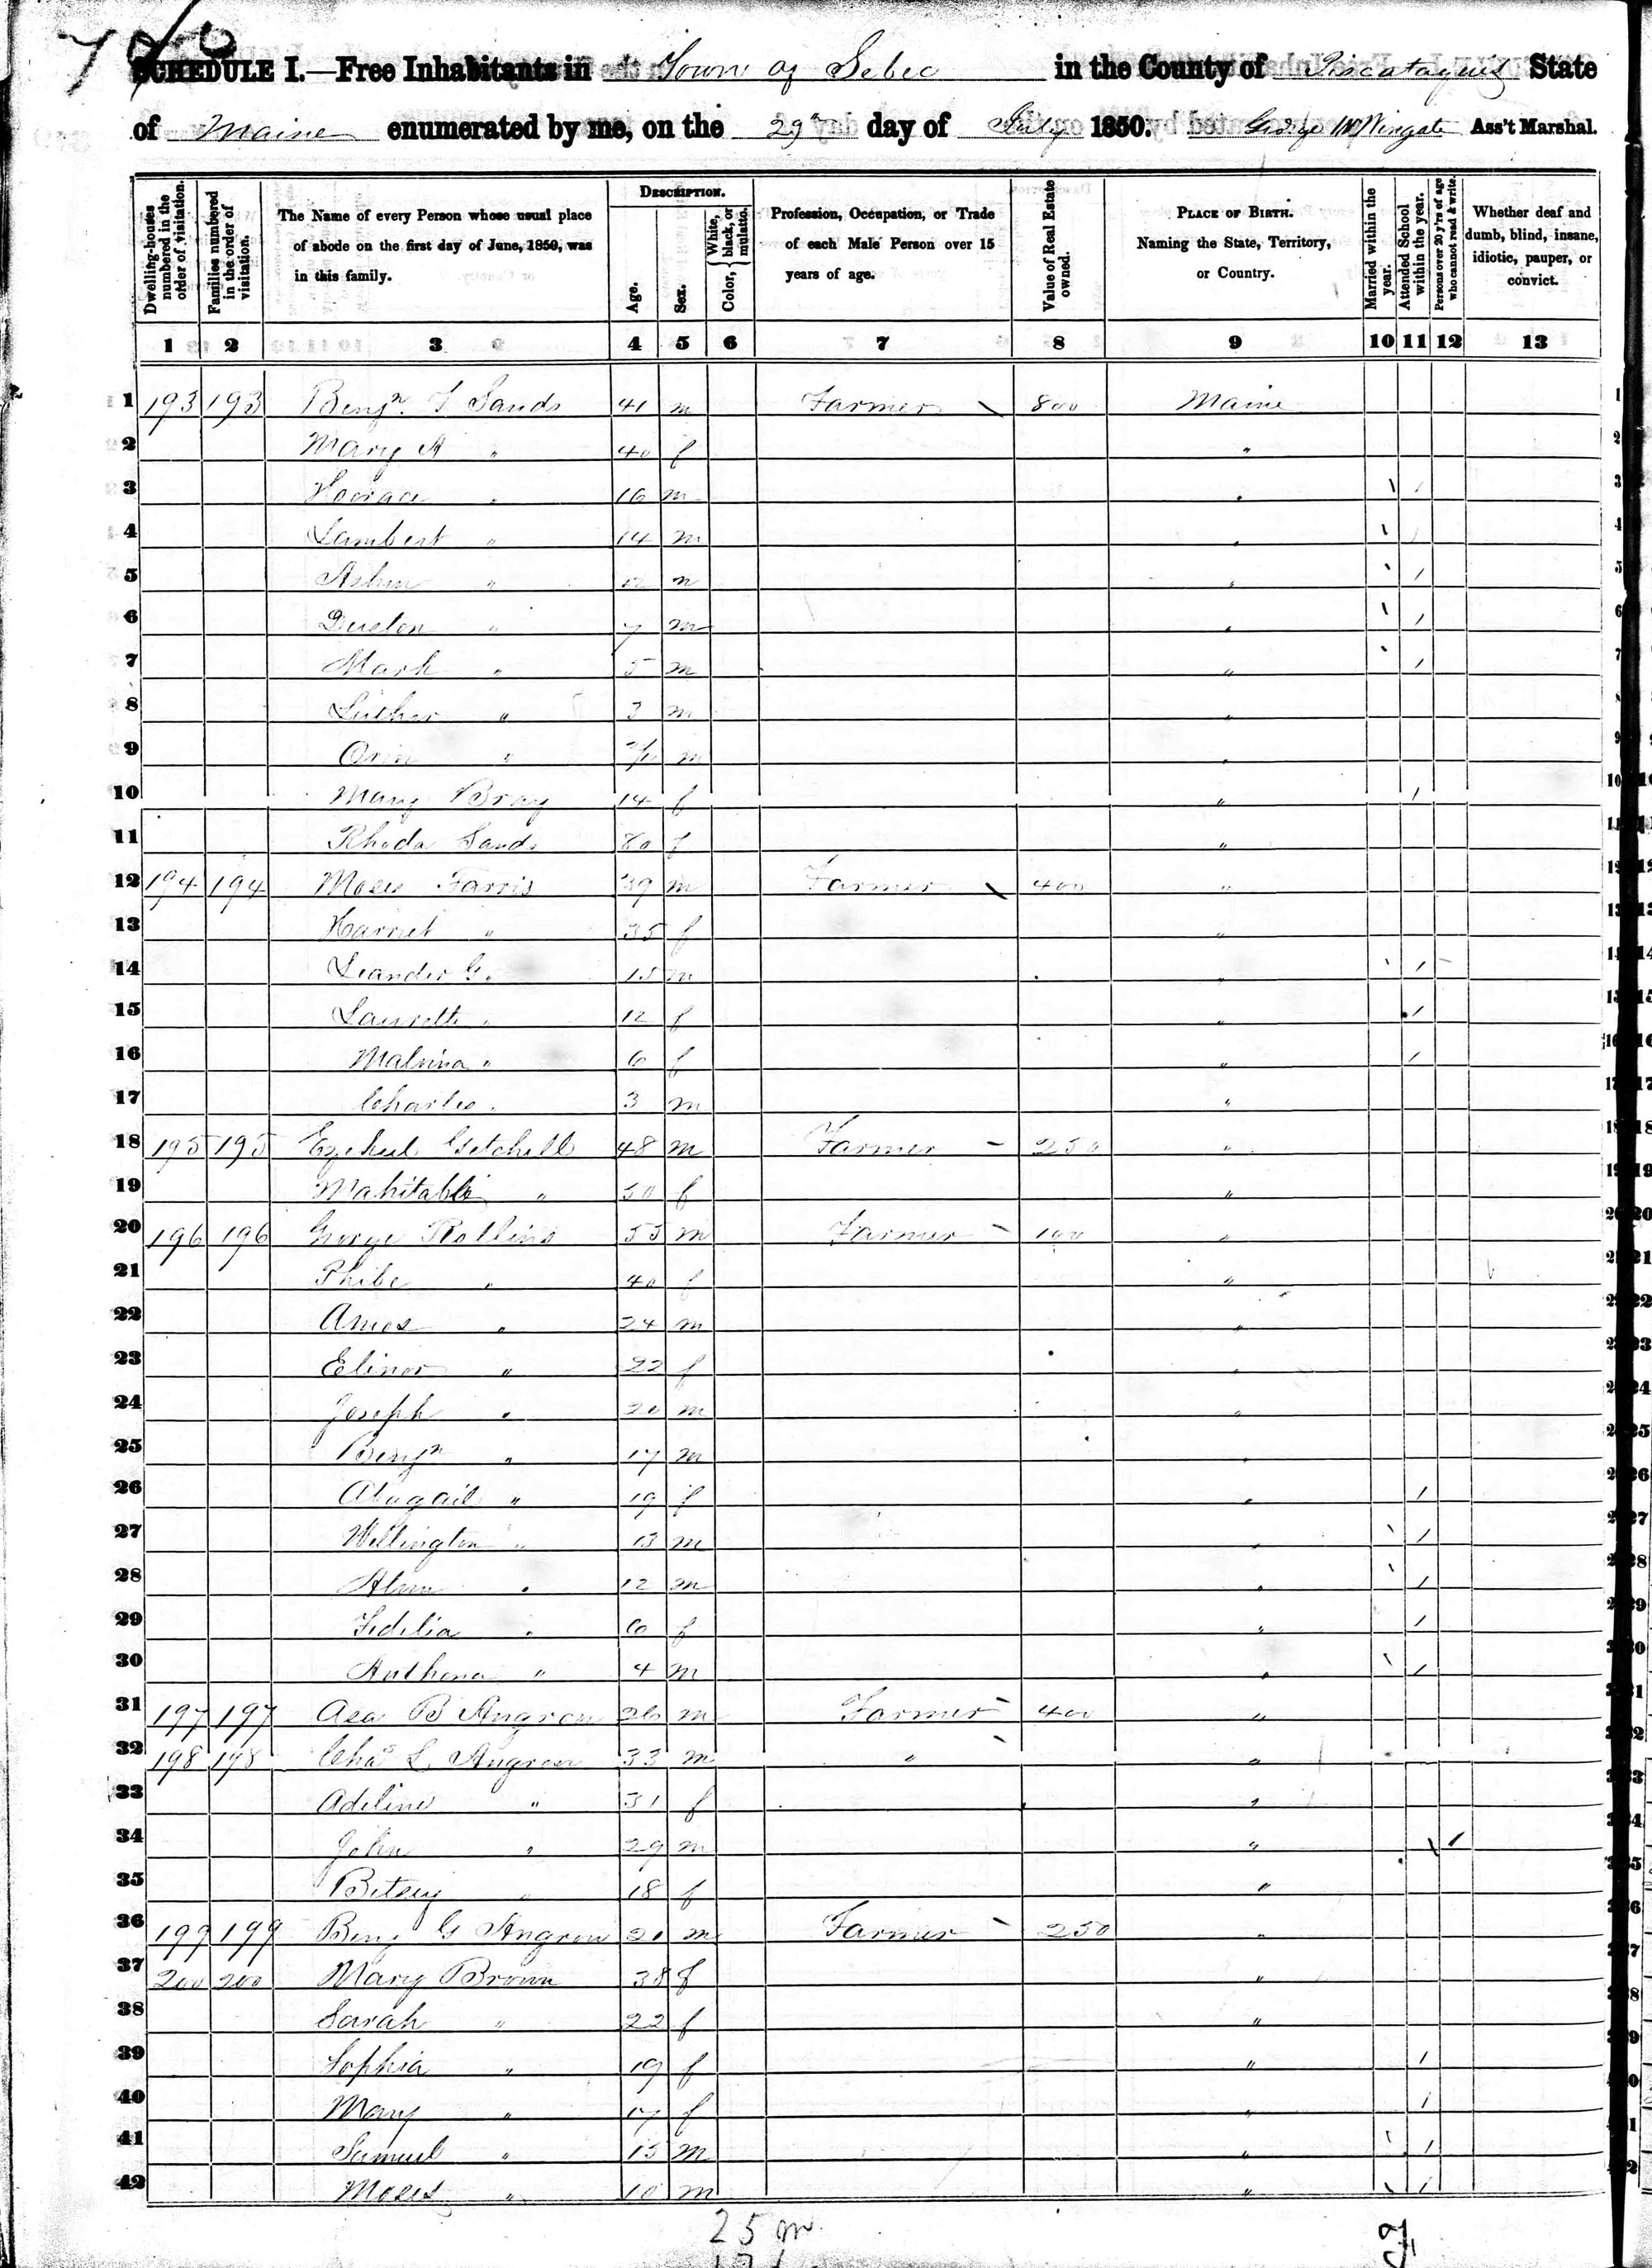 SCHEDULE I.—Free Inhabitants in Town of Sebec in the County of Piscataquis State
of Maine enumerated by me, on the 29th day of July 1850. George W Wingate Ass't Marshal.
Dwelling-houses numbered in the order of visitation.
Families numbered in the order of visitation.
The Name of every Person whose usual place of abode on the first day of June, 1850, was in this family.
DESCRIPTION.
Age.
Sex.
Color, White, black, or mulatto.
Profession, Occupation, or Trade of each Male Person over 15 years of age.
Value of Real Estate owned.
PLACE OF BIRTH. Naming the State, Territory, or Country.
Married within the year.
Attended School within the year.
Persons over 20 y'rs of age who cannot read & write.
Whether deaf and dumb, blind, insane, idiotic, pauper, or convict.
1 2 3 4 5 6 7 8 9 10 11 12 13
1 193 193 Benjn. Sands 41 m Farmer 800 Maine
2 Mary A " 40 f "
3 Horace " 16 m "
4 Lambert " 14 m "
5 " m "
6 " 7 m "
7 Mark " 5 m "
8 Luther " 3 m "
9 Orin " m "
10 Mary Bray 14 f "
11 Rhoda Sands 80 f "
12 194 194 Moses Farris 39 m Farmer 400 "
13 Harriet " 35 f "
14 Leander G. " 15 m "
15 Laurette " 12 f "
16 Malvina " 6 f "
17 Charles " 3 m "
18 195 195 Ezekiel Getchell 48 m Farmer 250 "
19 Mahitable " 50 f "
20 196 196 George Rollins 53 m Farmer 100 "
21 Phibe " 40 f "
22 Amos " 24 m "
23 Elinor " 22 f "
24 Joseph " 20 m "
25 Benjn " 17 m "
26 Abagail " 19 f "
27 Wellington " 13 m "
28 " 12 m "
29 Fidelia " 6 f "
30 " 4 m "
31 197 197 Asa B Angrove 26 m Farmer 400 "
32 198 198 Chas L Angrove 33 m " "
33 Adeline " 31 f "
34 John " 29 m "
35 Betsey " 18 f "
36 199 199 Benj G Angrove m Farmer 250 "
37 200 200 Mary Brown 38 f "
38 Sarah " 22 f "
39 Sophia " 19 f "
40 Mary " 17 f "
41 Samuel " 15 m "
42 Moses " 10 m "
25 m